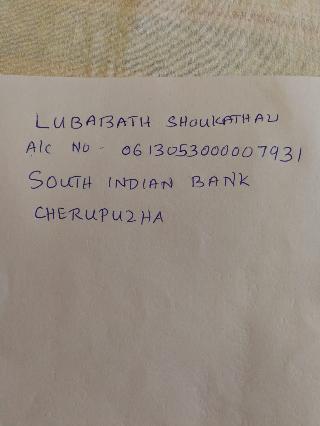 LUBABATH SHOUKATHALI
A/C NO - 0613053000007931
SOUTH INDIAN BANK
CHERUPUZHA